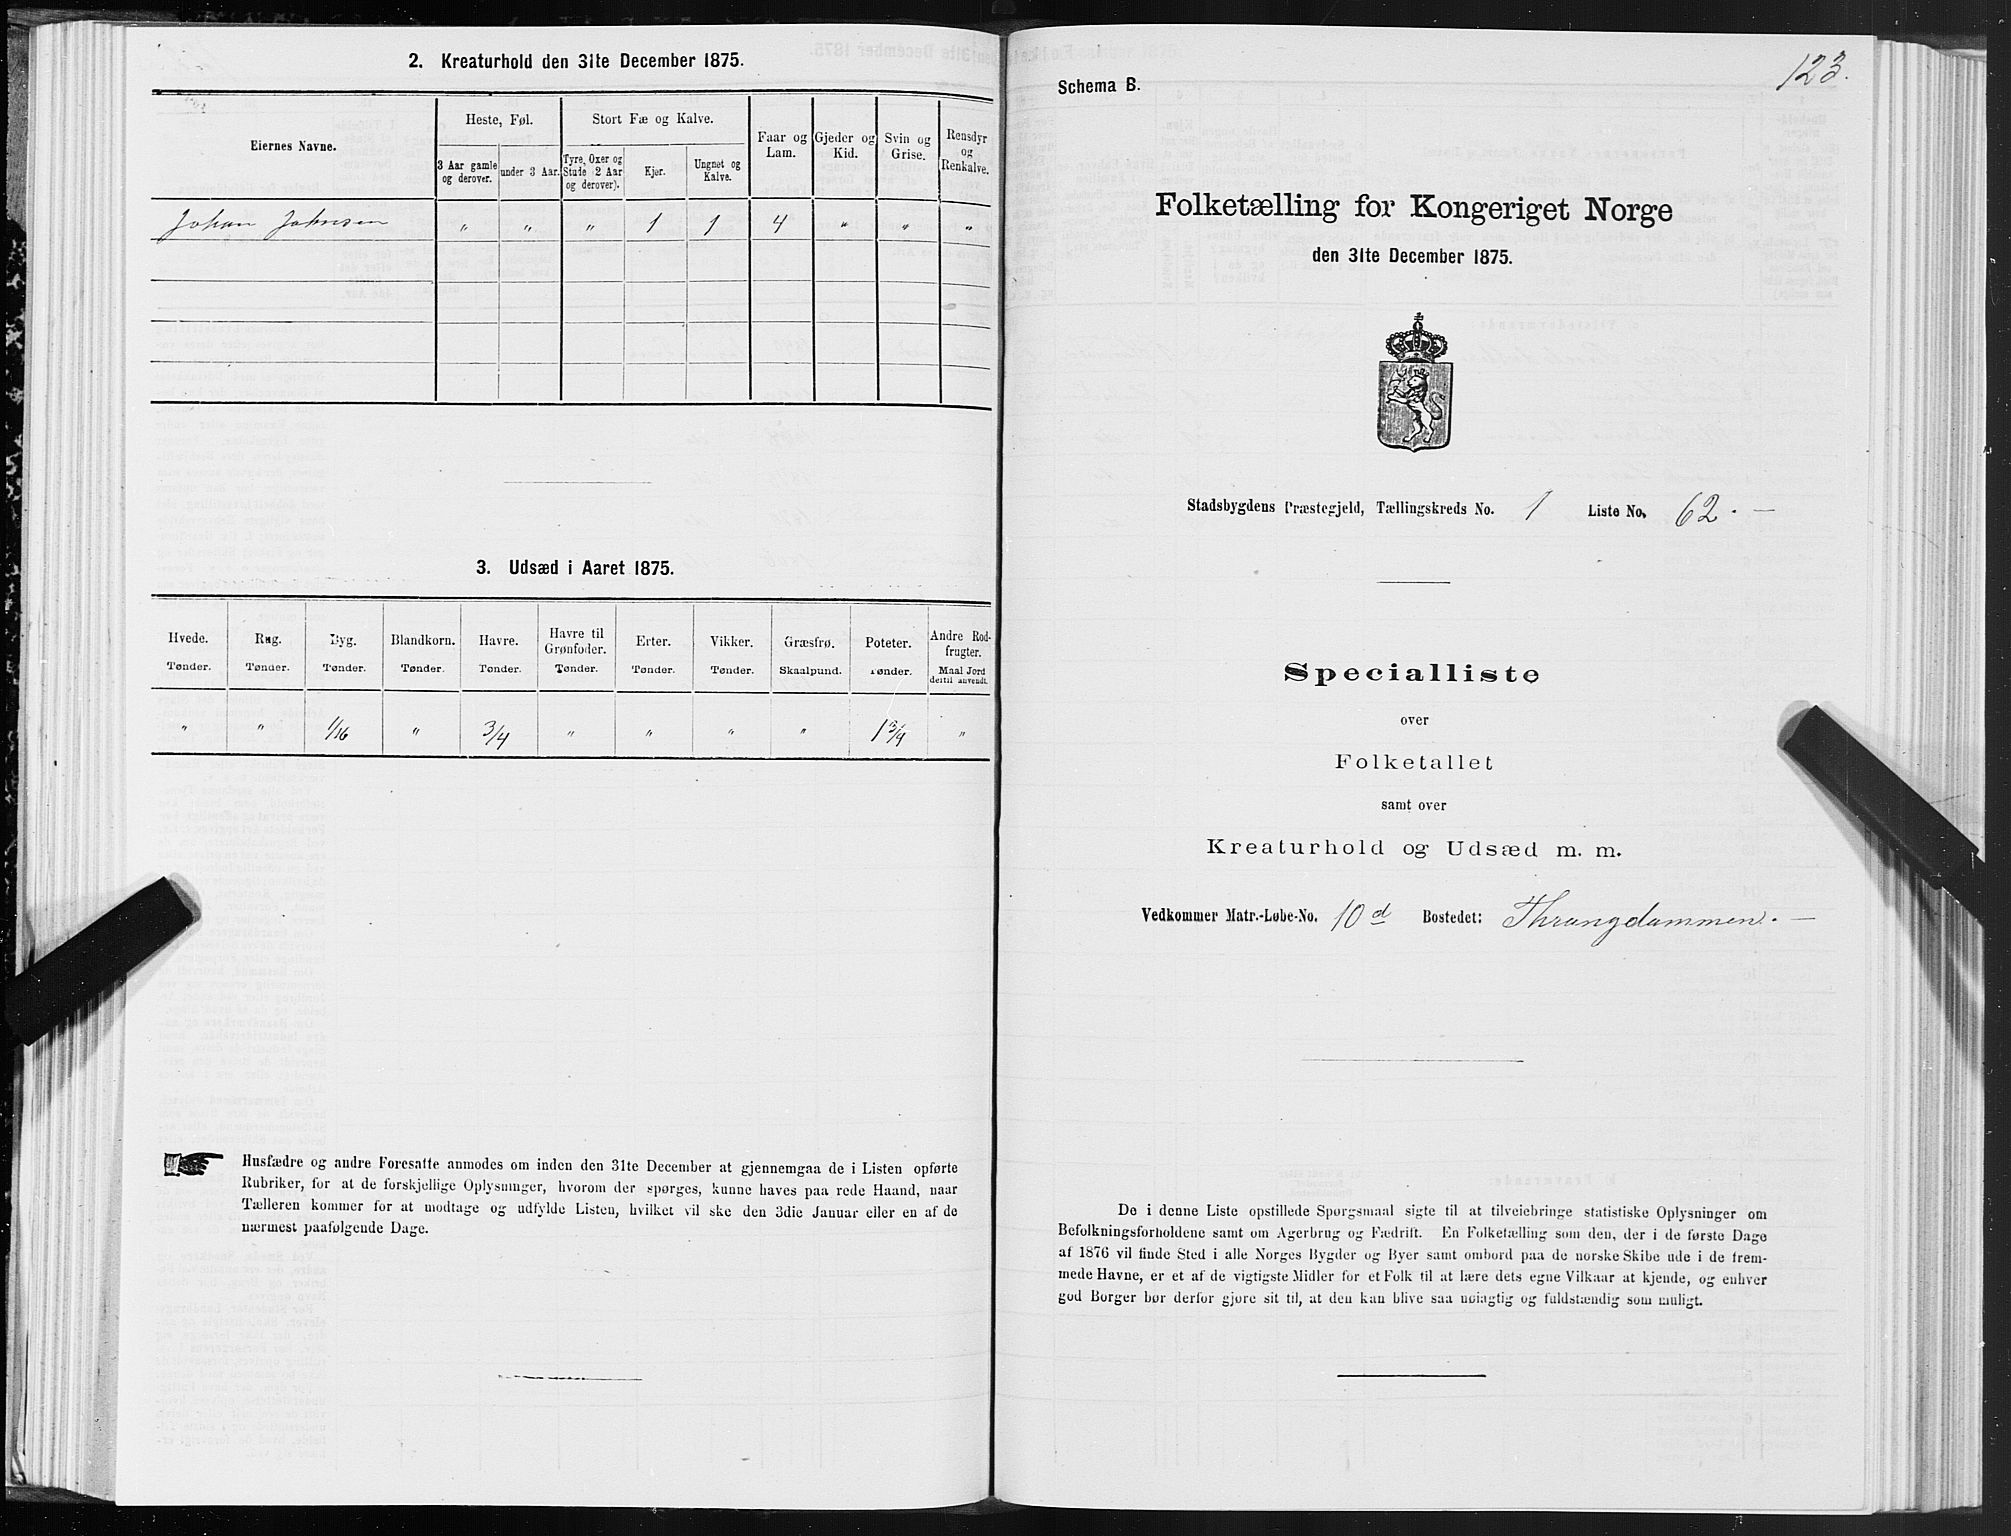 2. Kreaturhold den 31te December 1875.
Eiernes Navne.
Heste, Føl.
Stort Fæ og Kalve.
Faar og Lam.
Gjeder og Kid.
Svin og Grise.
Rensdyr og Renkalve.
3 Aar gamle og derover.
under 3 Aar.
Tyre, Oxer og Stude (2 Aar og derover).
Kjør.
Ungnet og Kalve.
Johan Johnsen " " " 1 1 4 " " "
3. Udsæd i Aaret 1875.
Hvede. Rug. Byg. Blandkorn. Havre. Havre til Grønfoder. Erter. Vikker. Græsfrø. Poteter. Andre Rodfrugter.
Tønder. Tønder. Tønder. Tønder. Tønder. Tønder. Tønder. Tønder. Skaalpund. Tønder. Maal Jord dertil anvendt.
" " 1/16 " 3/4 " " " " 1 3/4 "
Husfædre og andre Foresatte anmodes om inden den 31te December at gjennemgaa de i Listen opførte
Rubriker, for at de forskjellige Oplysninger, hvorom der spørges, kunne haves paa rede Haand, naar
Tælleren kommer for at modtage og udfylde Listen, hvilket vil ske den 3die Januar eller en af de
nærmest paafølgende Dage.
123.
Schema B.
Folketælling for Kongeriget Norge
den 31te December 1875.
Stadsbygdens Præstegjeld, Tællingskreds No. 1 Liste No. 62. —
Specialliste
over
Folketallet
samt over
Kreaturhold og Udsæd m. m.
Vedkommer Matr.-Løbe-No. 10 d Bostedet: Thrangdammen. —
De i denne Liste opstillede Spørgsmaal sigte til at tilveiebringe statistiske Oplysninger om
Befolkningsforholdene samt om Agerbrug og Fædrift. En Folketælling som den, der i de første Dage
af 1876 vil finde Sted i alle Norges Bygder og Byer samt ombord paa de norske Skibe ude i de frem-
mede Havne, er et af de vigtigste Midler for et Folk til at lære dets egne Vilkaar at kjende, og enhver
god Borger bør derfor gjøre sit til, at den kan blive saa nøiagtig og fuldstændig som muligt.